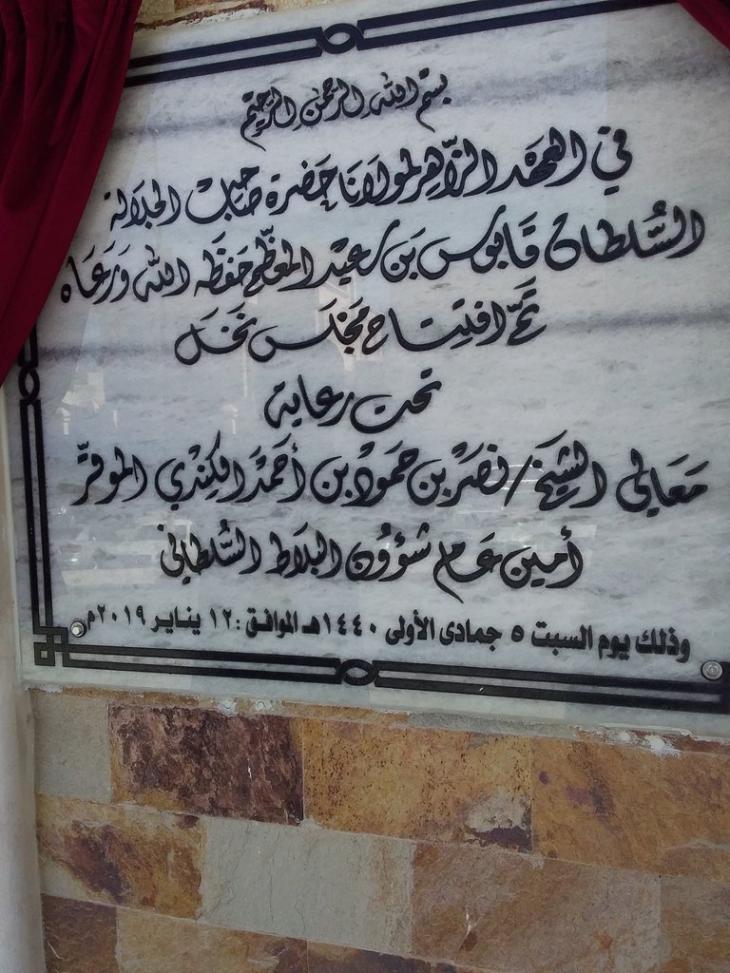 بسم الله الرحمن الرحيم
في العهد الزاهر لمولانا حضرة صاحب الجلالة
السلطان قابوس بن سعيد المعظم حفظه الله ورعاه
تم افتتاح مجلس نخل
تحت رعاية
معالي الشيخ / نصر بن حمود بن أحمد الكندي الموقر
أمين عام شؤون البلاط السلطاني
وذلك يوم السبت ٥ جمادى الأولى ١٤٤٠هـ الموافق : ١٢ يناير ٢٠١٩م